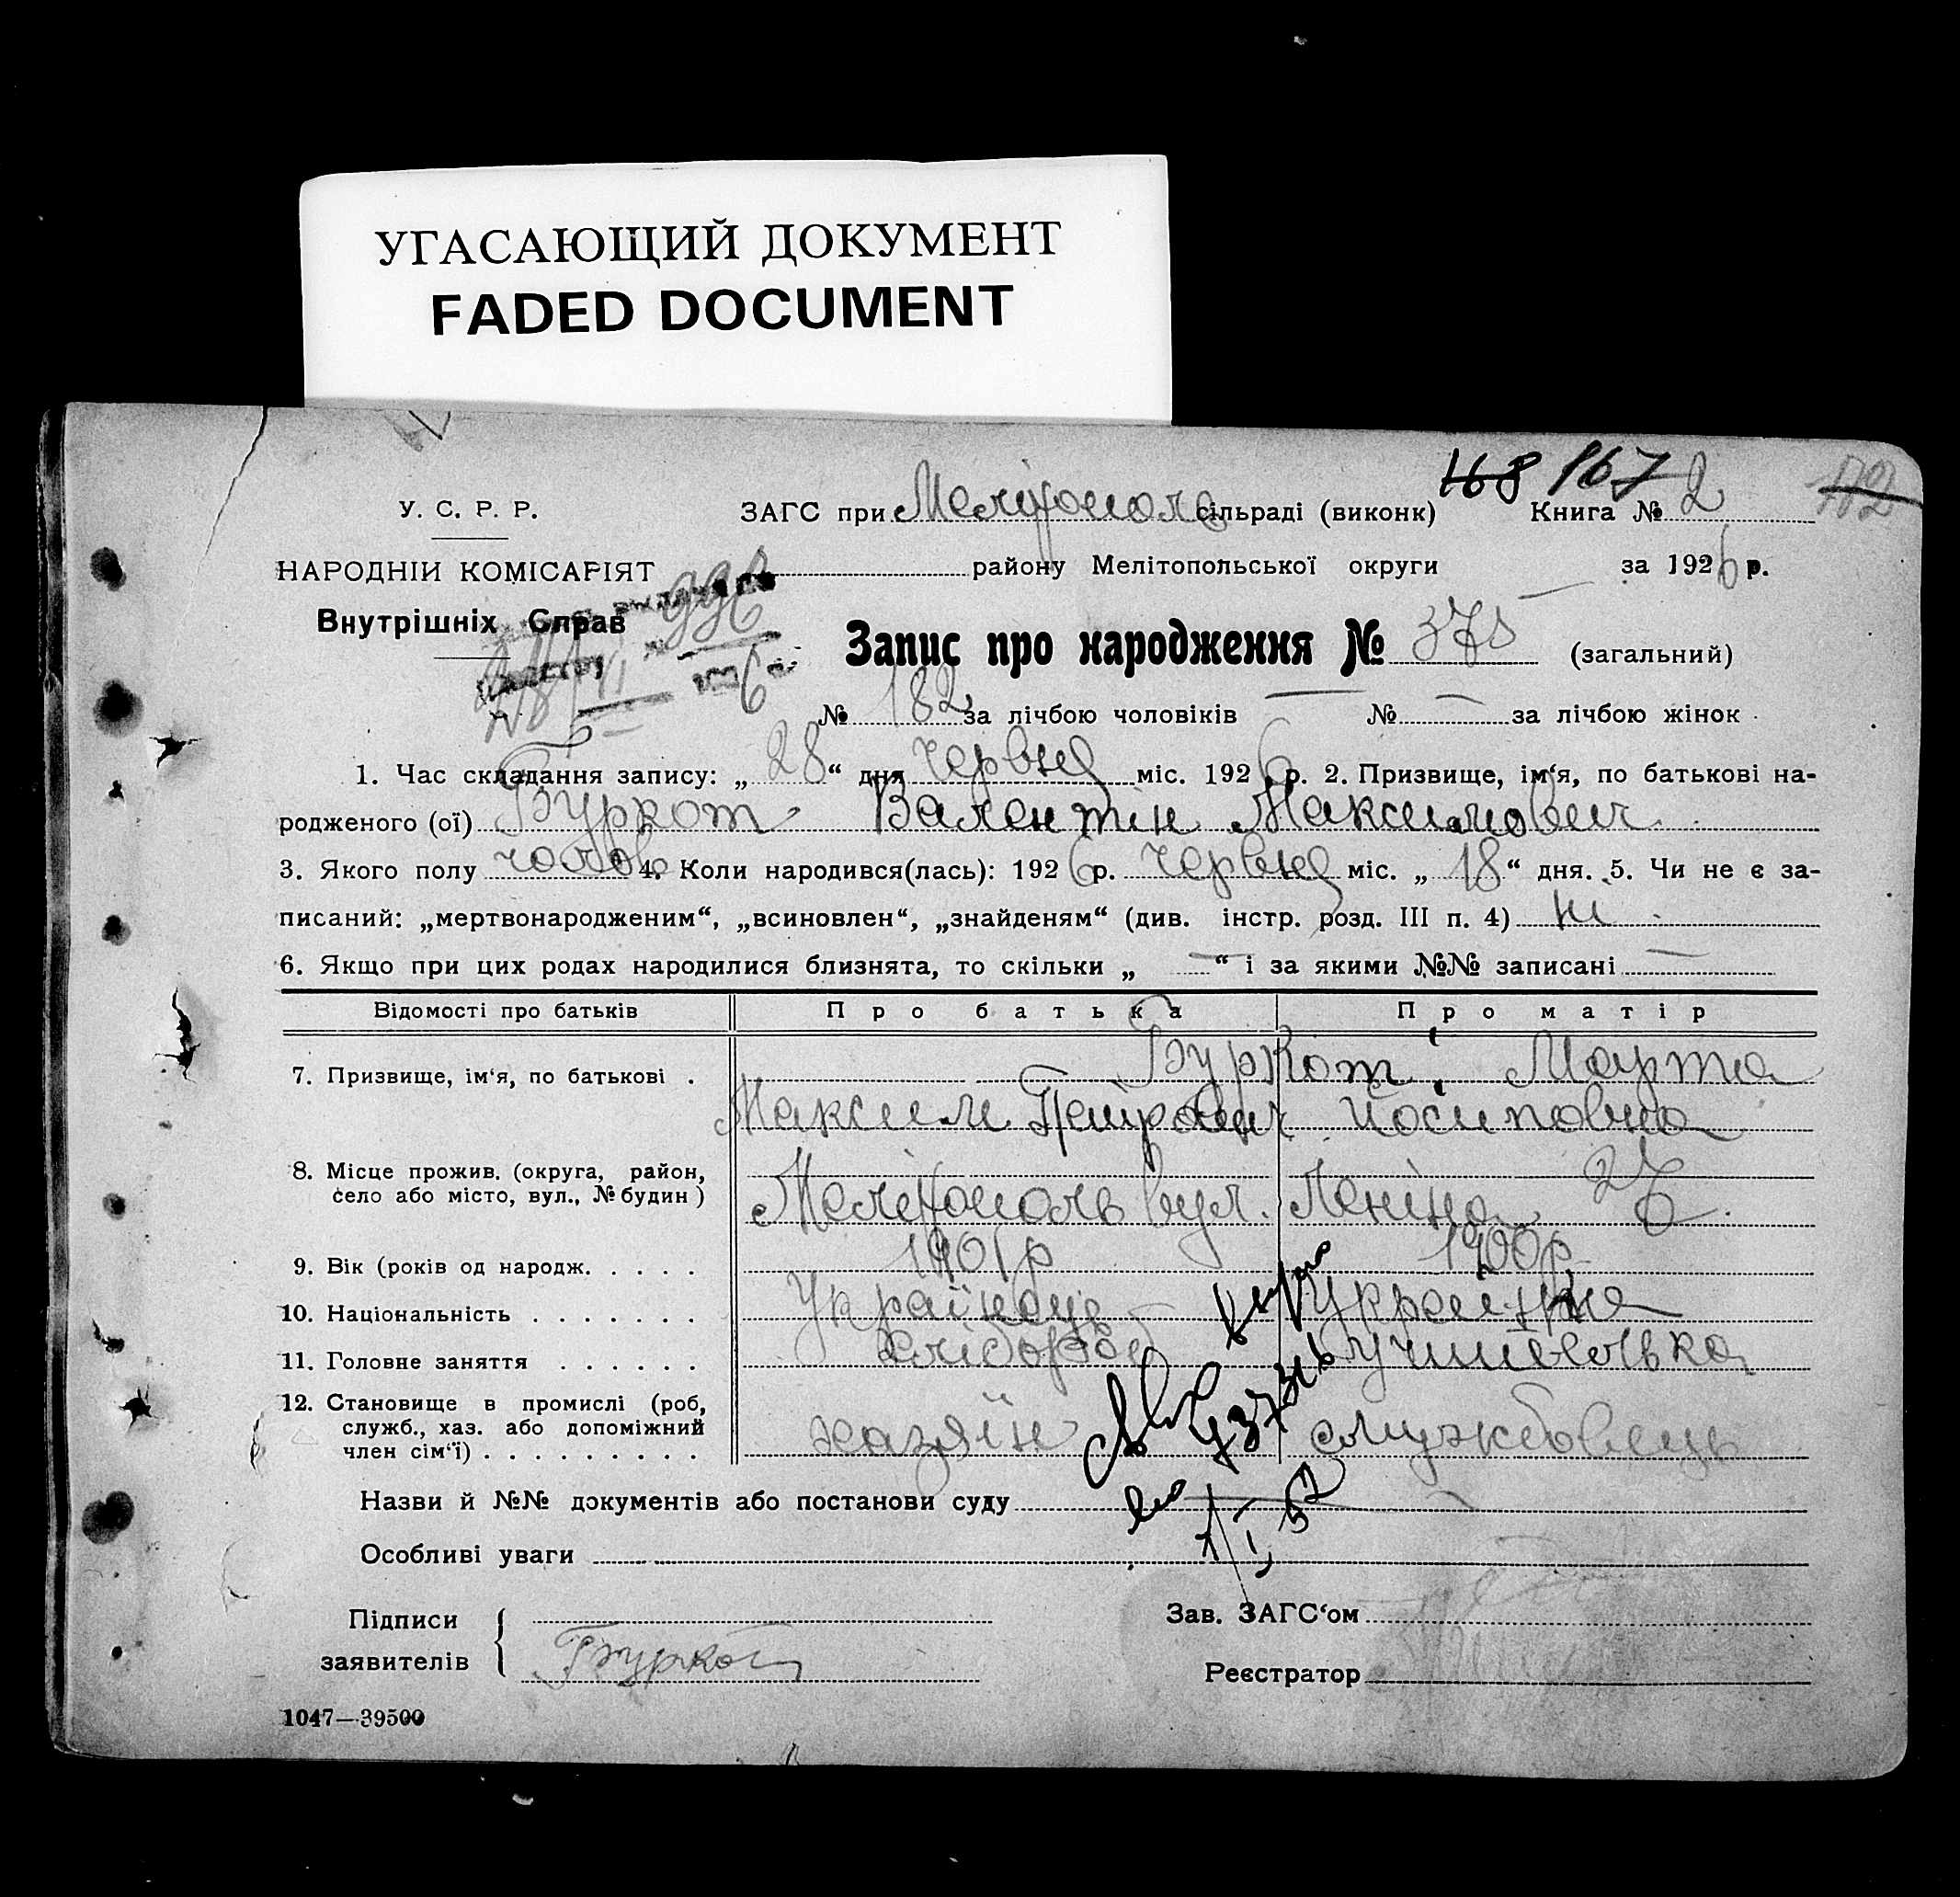 УГАСАЮЩИЙ ДОКУМЕНТ
FADED DOCUMENT
168 167 172
У. С. Р. Р. ЗАГС при Меліtополь сільраді (виконк) Книга № 2
НАРОДНІЙ КОМІСАРІЯТ району Мелітопольської округи за 1926 р.
Внутрішніх Справ
996
Запис про народження № 375 (загальний)
№ 182 за лічбою чоловіків № — за лічбою жінок
1. Час складання запису: „28“ дня червня міс. 1926 р. 2. Призвище, ім‘я, по батькові на-
родженого (ої) Буркот Валентін Максимович
3. Якого полу чолов 4. Коли народився(лась): 1926 р. Червня міс. „18“ дня. 5. Чи не є за-
писаний: „мертвонародженим“, „всиновлен“, „знайденям“ (див. інстр. розд. III п. 4) ні
6. Якщо при цих родах народилися близнята, то скільки „—“ і за якими №№ записані —
Відомості про батьків Про батька Про матір
7. Призвище, ім‘я, по батькові . Буркот Марта
Максим Петрович Йосиповна
8. Місце прожив. (округа, район,
село або місто, вул., № будин) Мелітополь вул. Леніна 26
9. Вік (років од народж. . . . . 1901 р 1900 р.
10. Національність . . . . . . . Українець Українка
11. Головне заняття . . . . . . хлібороб учителька
12. Становище в промислі (роб,
служб., хаз. або допоміжний
член сім‘ї) . . . . . . . . . хазяїн службовець
Назви й №№ документів або постанови суду
Особливі уваги
Підписи Зав. ЗАГС‘ом
заявителів Буркот Реєстратор
1047—39500